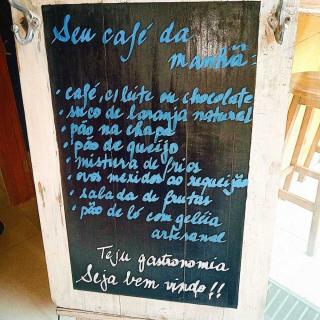 Seu café da
manhã:
· café, c/ leite ou chocolate
· suco de laranja natural
· pão na chapa
· pão de queijo
· mistura de frios
· ovos mexidos ao requeijão
· salada de frutas
· pão de ló com geléia
artesanal
Teju gastronomia
Seja bem vindo!!